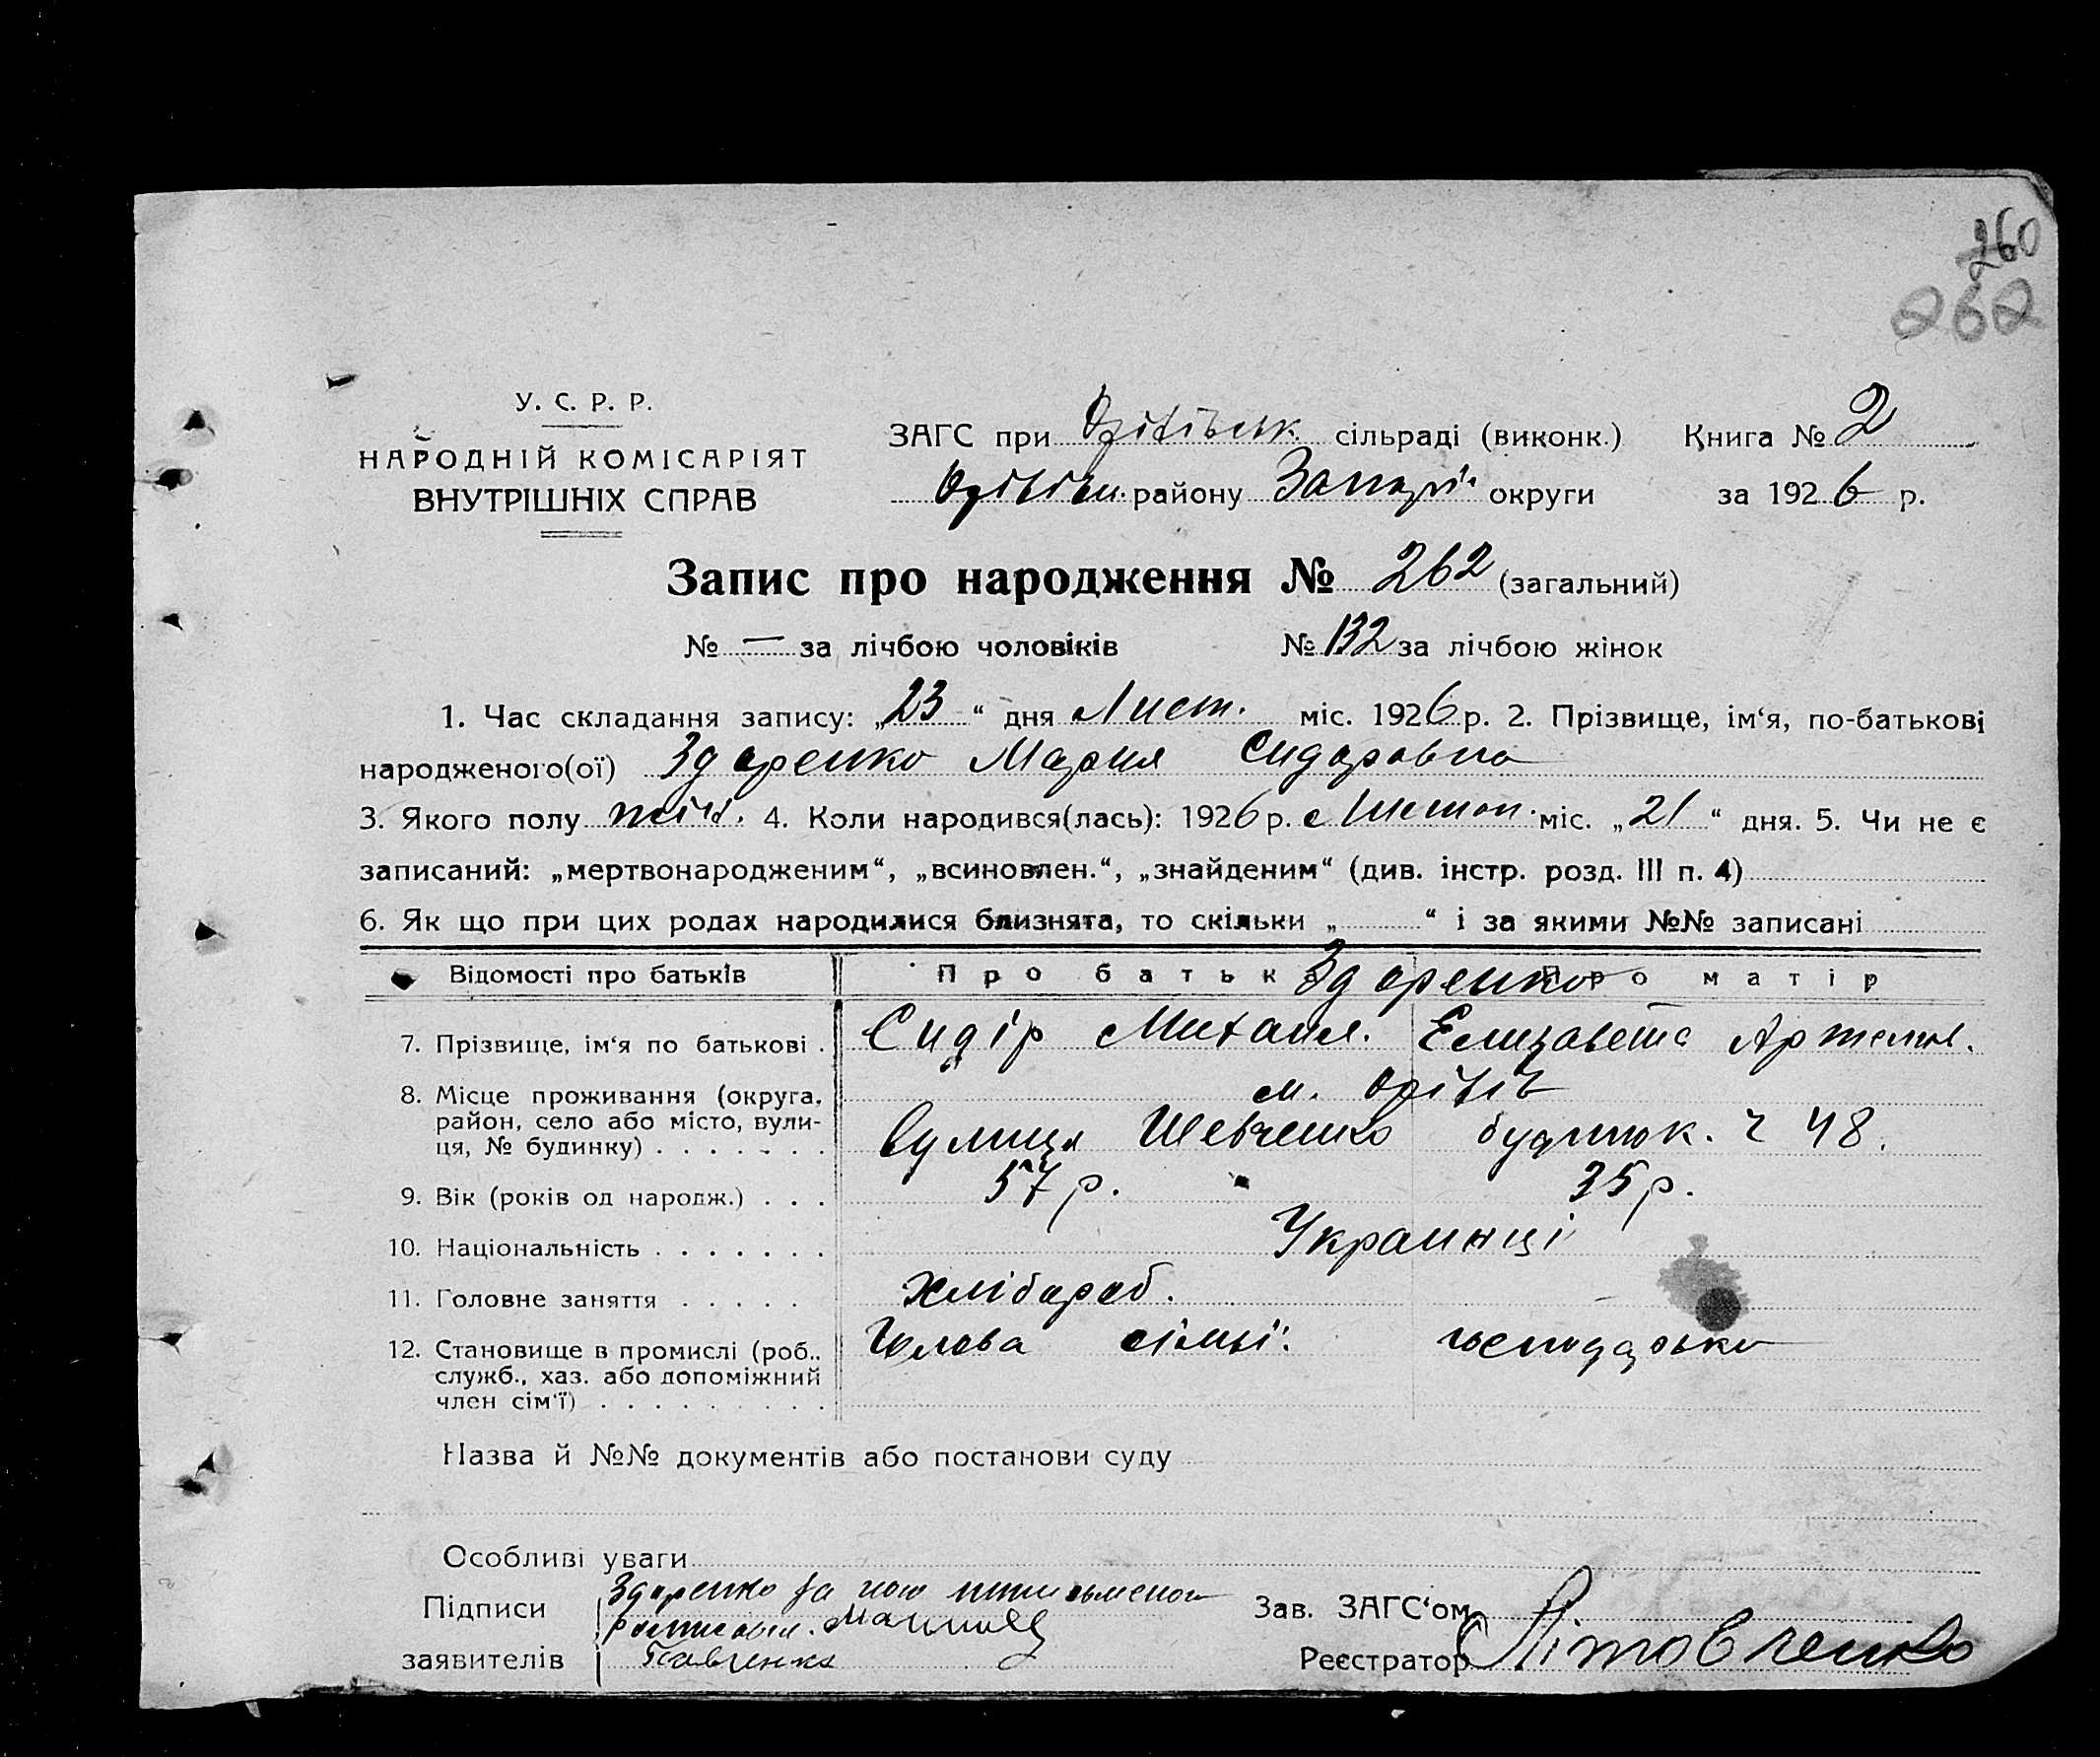 260
262
У. С. Р. Р.
НАРОДНІЙ КОМІСАРІЯТ
ВНУТРІШНІХ СПРАВ
ЗАГС при Оріхівськ. сільраді (виконк.) Книга № 2
Оріхівськ. району Запоріз. округи за 1926 р.
Запис про народження № 262 (загальний)
№ — за лічбою чоловіків № 132 за лічбою жінок
1. Час складання запису: „23“ дня Лист. міс. 1926 р. 2. Прізвище, ім‘я, по-батькові
народженого(ої) Здоренко Мария Сидоровна
3. Якого полу жіч. 4. Коли народився(лась): 1926 р. Листоп. міс. „21“ дня. 5. Чи не є
записаний: „мертвонародженим“, „всиновлен.“, „знайденим“ (див. інстр. розд. III п. 4)
6. Як що при цих родах народилися близнята, то скільки „ “ і за якими №№ записані
Відомості про батьків Про батька Здоренко Про матір
7. Прізвище, ім‘я по батькові . Сидір Михайл. Елизавета Артемов.
8. Місце проживання (округа, м. Оріхів
район, село або місто, вули-
ця, № будинку) . . . . . . . Вулиця Шевченко будинок. ч 48.
9. Вік (років од народж.) . . . 57 р. 35 р.
10. Національність . . . . . . . Украинці
11. Головне заняття . . . . . Хлібороб.
12. Становище в промислі (роб., Голова сімьї. господарька
служб., хаз. або допоміжний
член сім‘ї) . . . . . . . . .
Назва й №№ документів або постанови суду
Особливі уваги
Підписи Здоренко за
Зав. ЗАГС‘ом
заявителів
Реєстратор